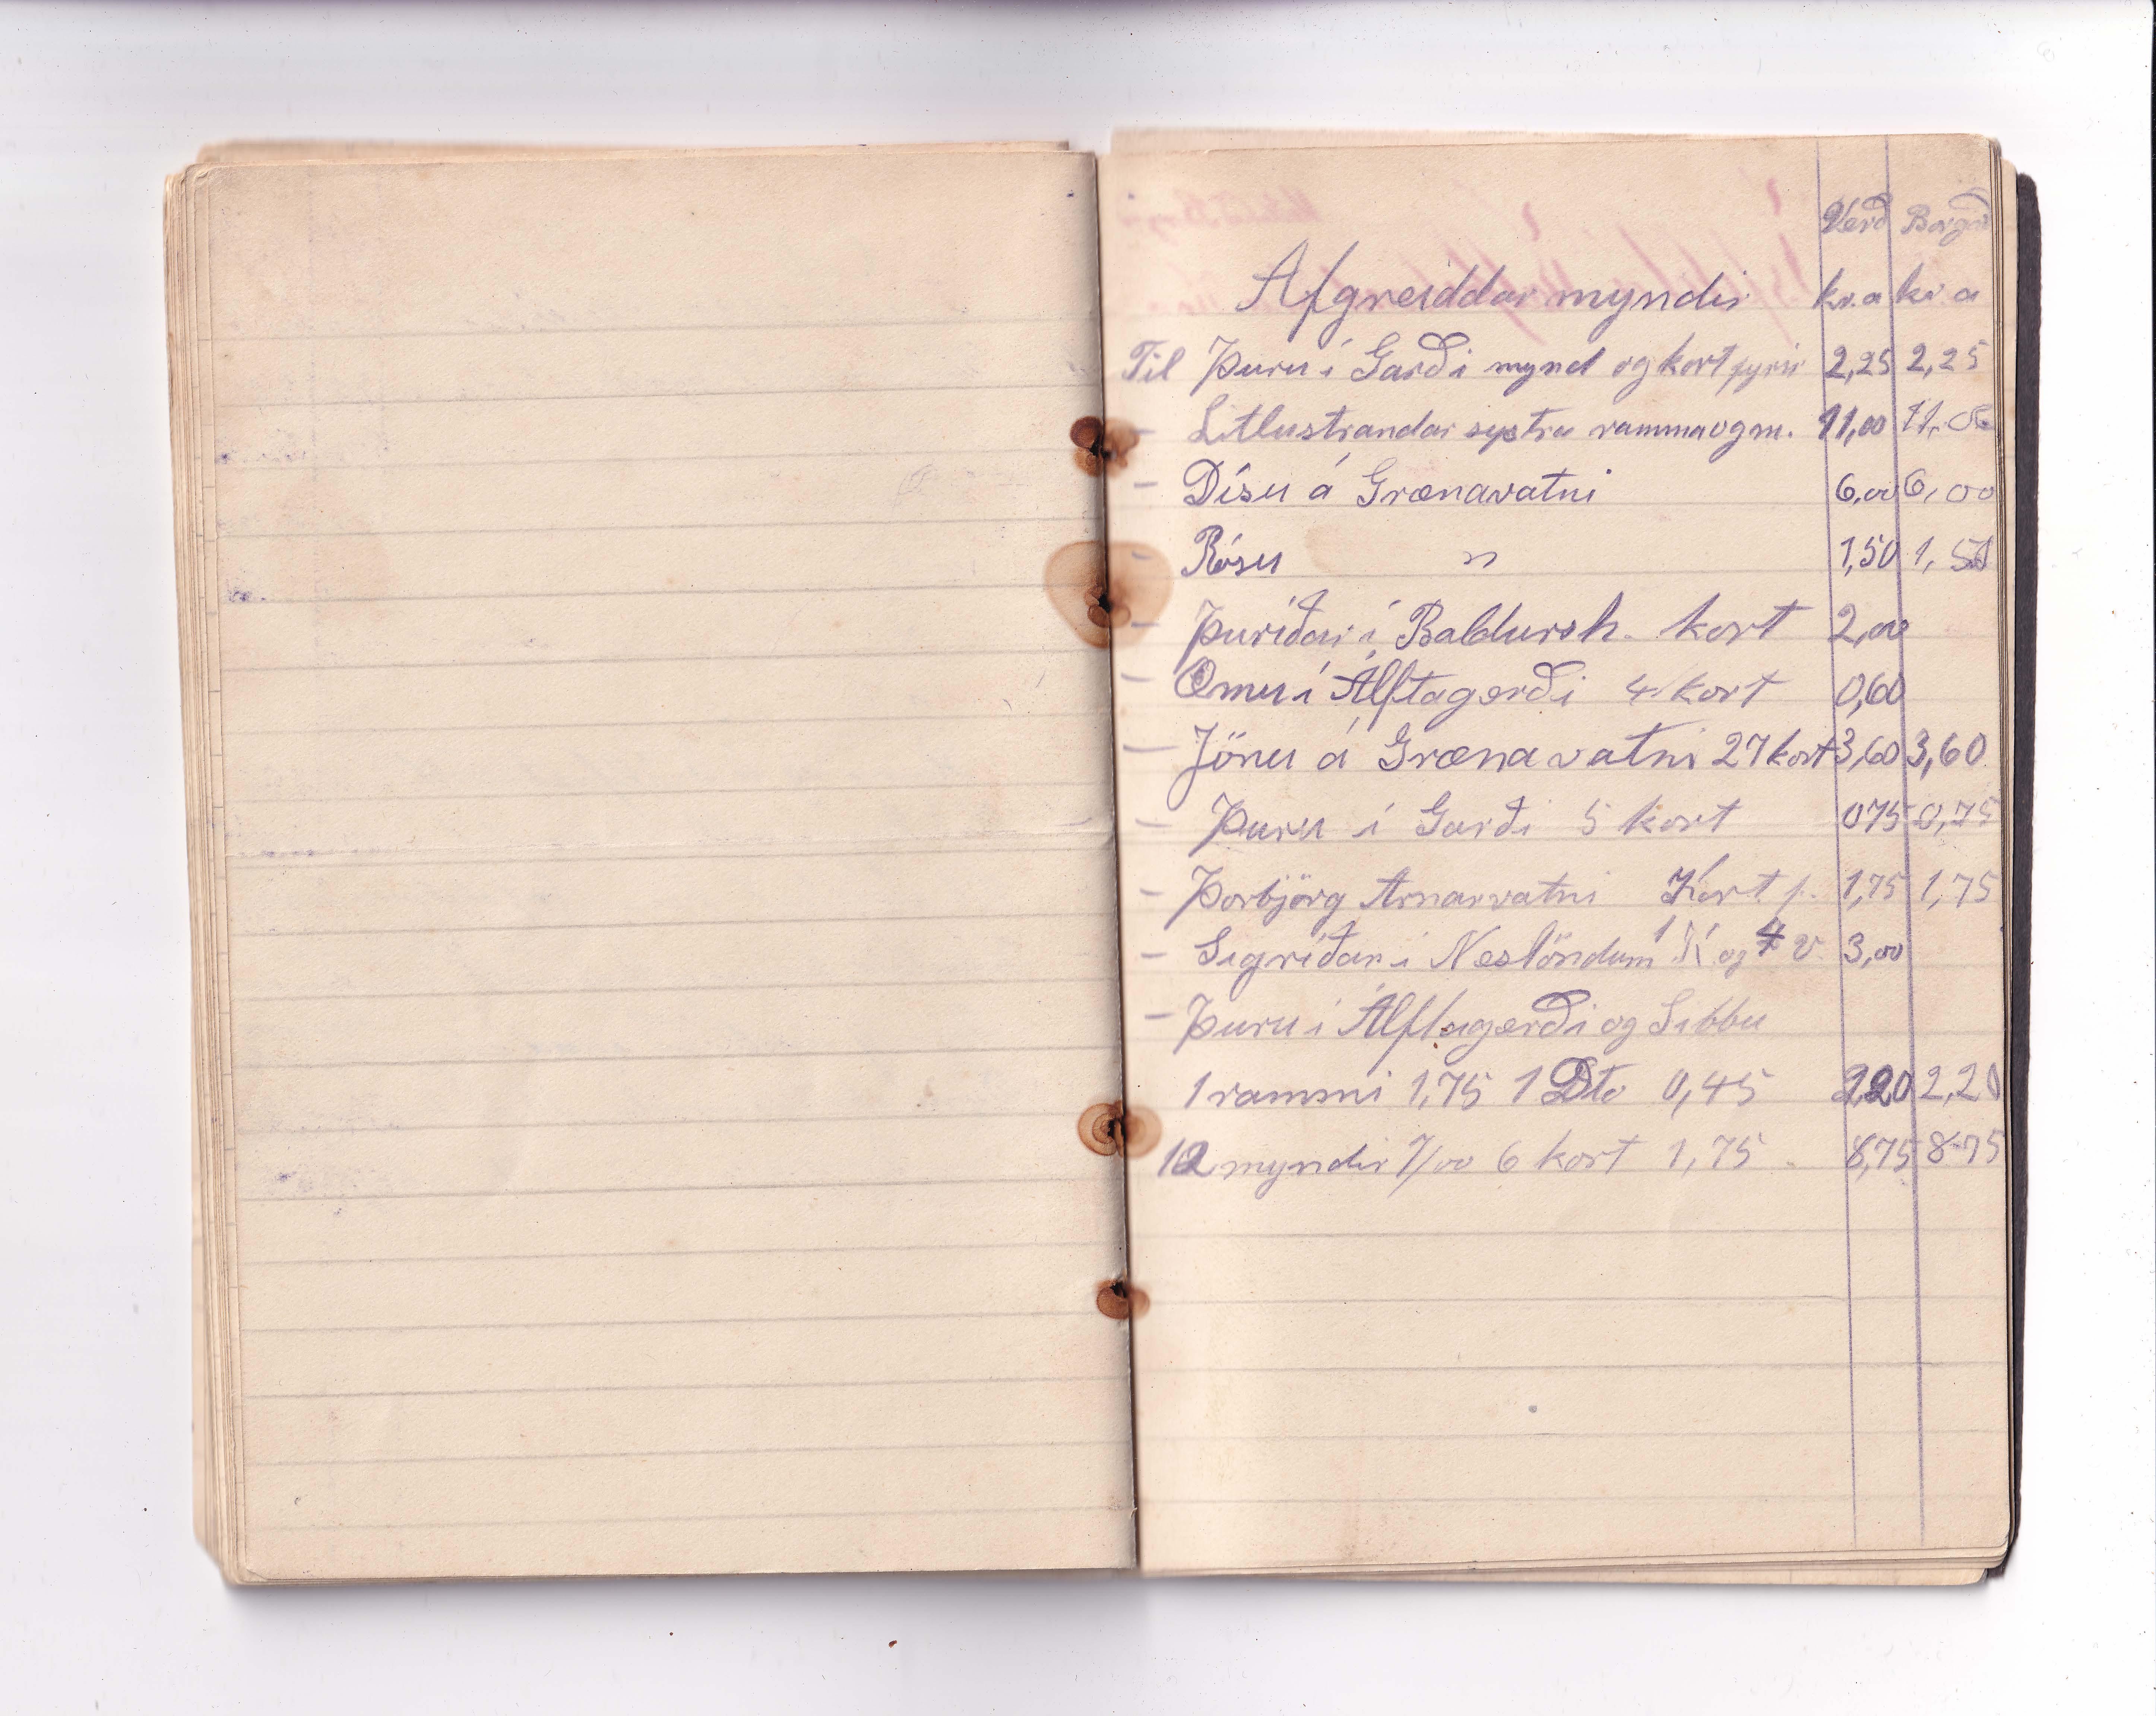 Verð Borgað
Afgreiddar myndir kr. a kr a
Til Þuru í Garði mynd og kort fyrir 2,25 2,25
– Litlustrandar systra ramma og m. 11,00 11,00
– Dísu á Grænavatni 6,00 6,00
– Rósu " 1,50 1,50
– Þuríðar í Baldursh. kort 2,00
– í Álftagerði 4 kort 0,60
– Jónu á Grænavatni 27 kort 3,60 3,60
– Þuru í Garði 5 kort 075 0,75
– Þorbjörg Arnarvatni Kort f. 1,75 1,75
– Sigríðar í Neslöndum 1 K og 4 v. 3,00
– Þuru í Álftagerði og Sibbu
1 rammi 1,75 1 Dto 0,45 2,20 2,20
12 myndir 7/00 6 kort 1,75 8,75 8-75